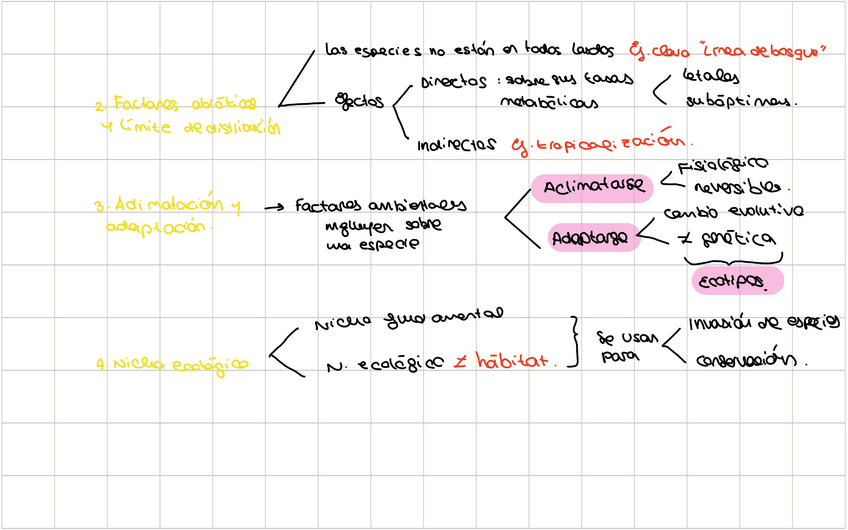 Las especies no están en todos lardos Ej. clavo "línea de bosque"
2. Factores abióticos
y límite de distribución
Efectos
Directos : sobre sus tasas
metabólicas
letales
subóptimas.
Indirectos Ej. tropicalización.
3. Aclimatación y
adaptación.
→ Factores ambientales
influyen sobre
una especie
Aclimatarse
Fisiológico
reversibles.
Adaptarse
cambio evolutivo
≠ genética
Ecotipos.
4. Nicho ecológico
Nicho fundamental
N. ecológico ≠ hábitat.
Se usan
para
Invasión de especies
conservación.